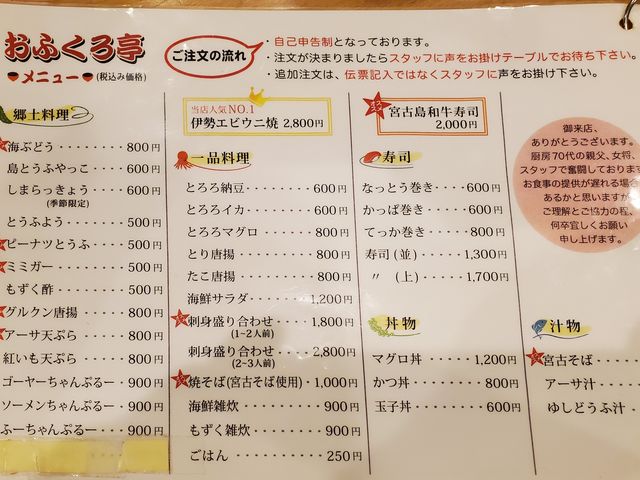 おふくろ亭
メニュー (税込み価格)
ご注文の流れ
・自己申告制となっております。
・注文が決まりましたらスタッフに声をお掛けテーブルでお待ち下さい。
・追加注文は、伝票記入ではなくスタッフに声をお掛け下さい。
郷土料理
海ぶどう・・・・・・・800円
島とうふやっこ・・・・600円
しまらっきょう・・・・600円
(季節限定)
とうふよう・・・・・・500円
ピーナツとうふ・・・・500円
ミミガー・・・・・・・500円
もずく酢・・・・・・・500円
グルクン唐揚・・・・・800円
アーサ天ぷら・・・・・800円
紅いも天ぷら・・・・・800円
ゴーヤーちゃんぷるー・900円
ソーメンちゃんぷるー・900円
ふーちゃんぷるー・・・900円
当店人気NO.1
伊勢エビウニ焼 2,800円
一品料理
とろろ納豆・・・・・・600円
とろろイカ・・・・・・600円
とろろマグロ・・・・・800円
とり唐揚・・・・・・・800円
たこ唐揚・・・・・・・800円
海鮮サラダ・・・・・1,200円
刺身盛り合わせ・・・1,800円
(1~2人前)
刺身盛り合わせ・・・2,800円
(2~3人前)
焼そば(宮古そば使用)・1,000円
海鮮雑炊・・・・・・・900円
もずく雑炊・・・・・・900円
ごはん・・・・・・・・250円
宮古島和牛寿司
2,000円
寿司
なっとう巻き・・・・600円
かっぱ巻き・・・・・600円
てっか巻き・・・・・800円
寿司(並)・・・・・1,300円
〃 (上)・・・・・1,700円
丼物
マグロ丼・・・・・1,200円
かつ丼・・・・・・・800円
玉子丼・・・・・・・600円
御来店、
ありがとうございます。
厨房70代の親父、女将、
スタッフで奮闘しております
お食事の提供が遅れる場合
あるかと思いますが
ご理解とご協力の程、
何卒宜しくお願い
申し上げます。
汁物
宮古そば・・・・・
アーサ汁・・・・・
ゆしどうふ汁・・・